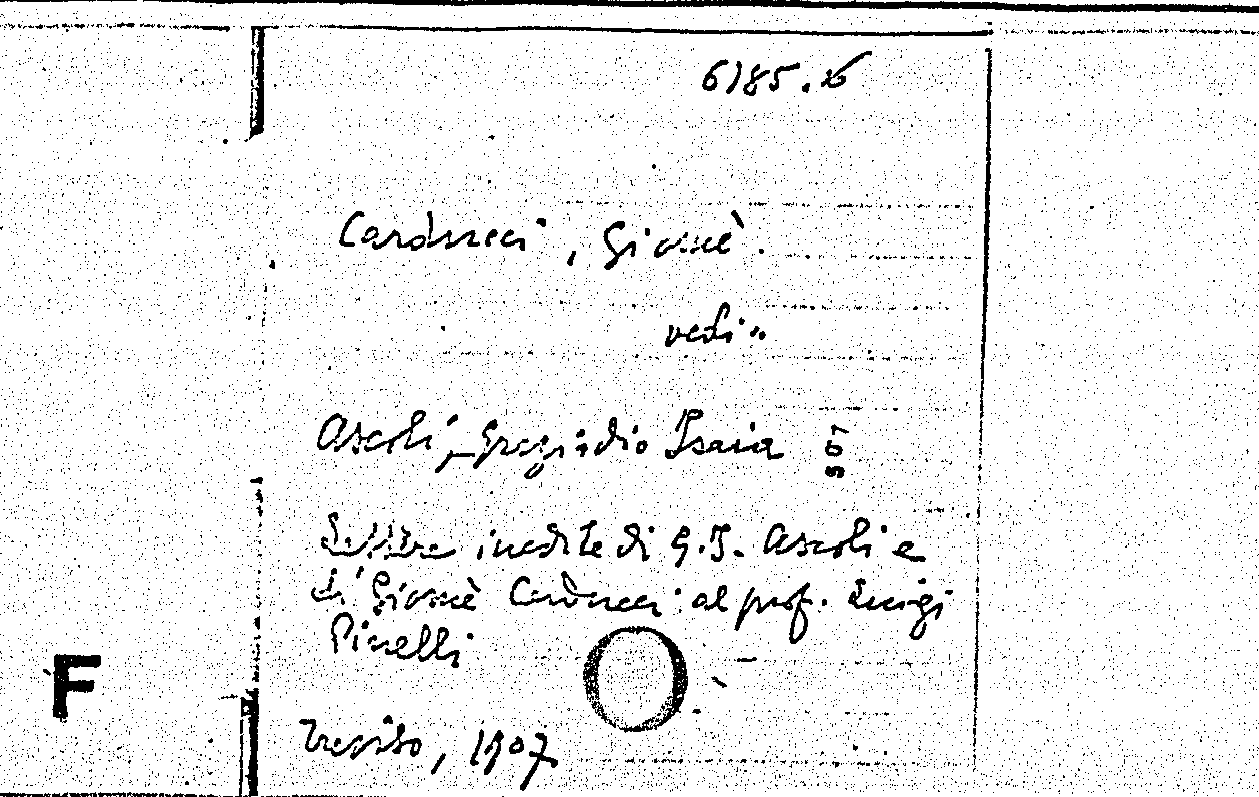 6185.16
Carducci, Giosuè.
vedi:
Ascoli, Graziadio Isaia
507
Lettere inedite di G.I. Ascoli e
di Giosuè Carducci al prof. Luigi
Pinelli
Treviso, 1907
F